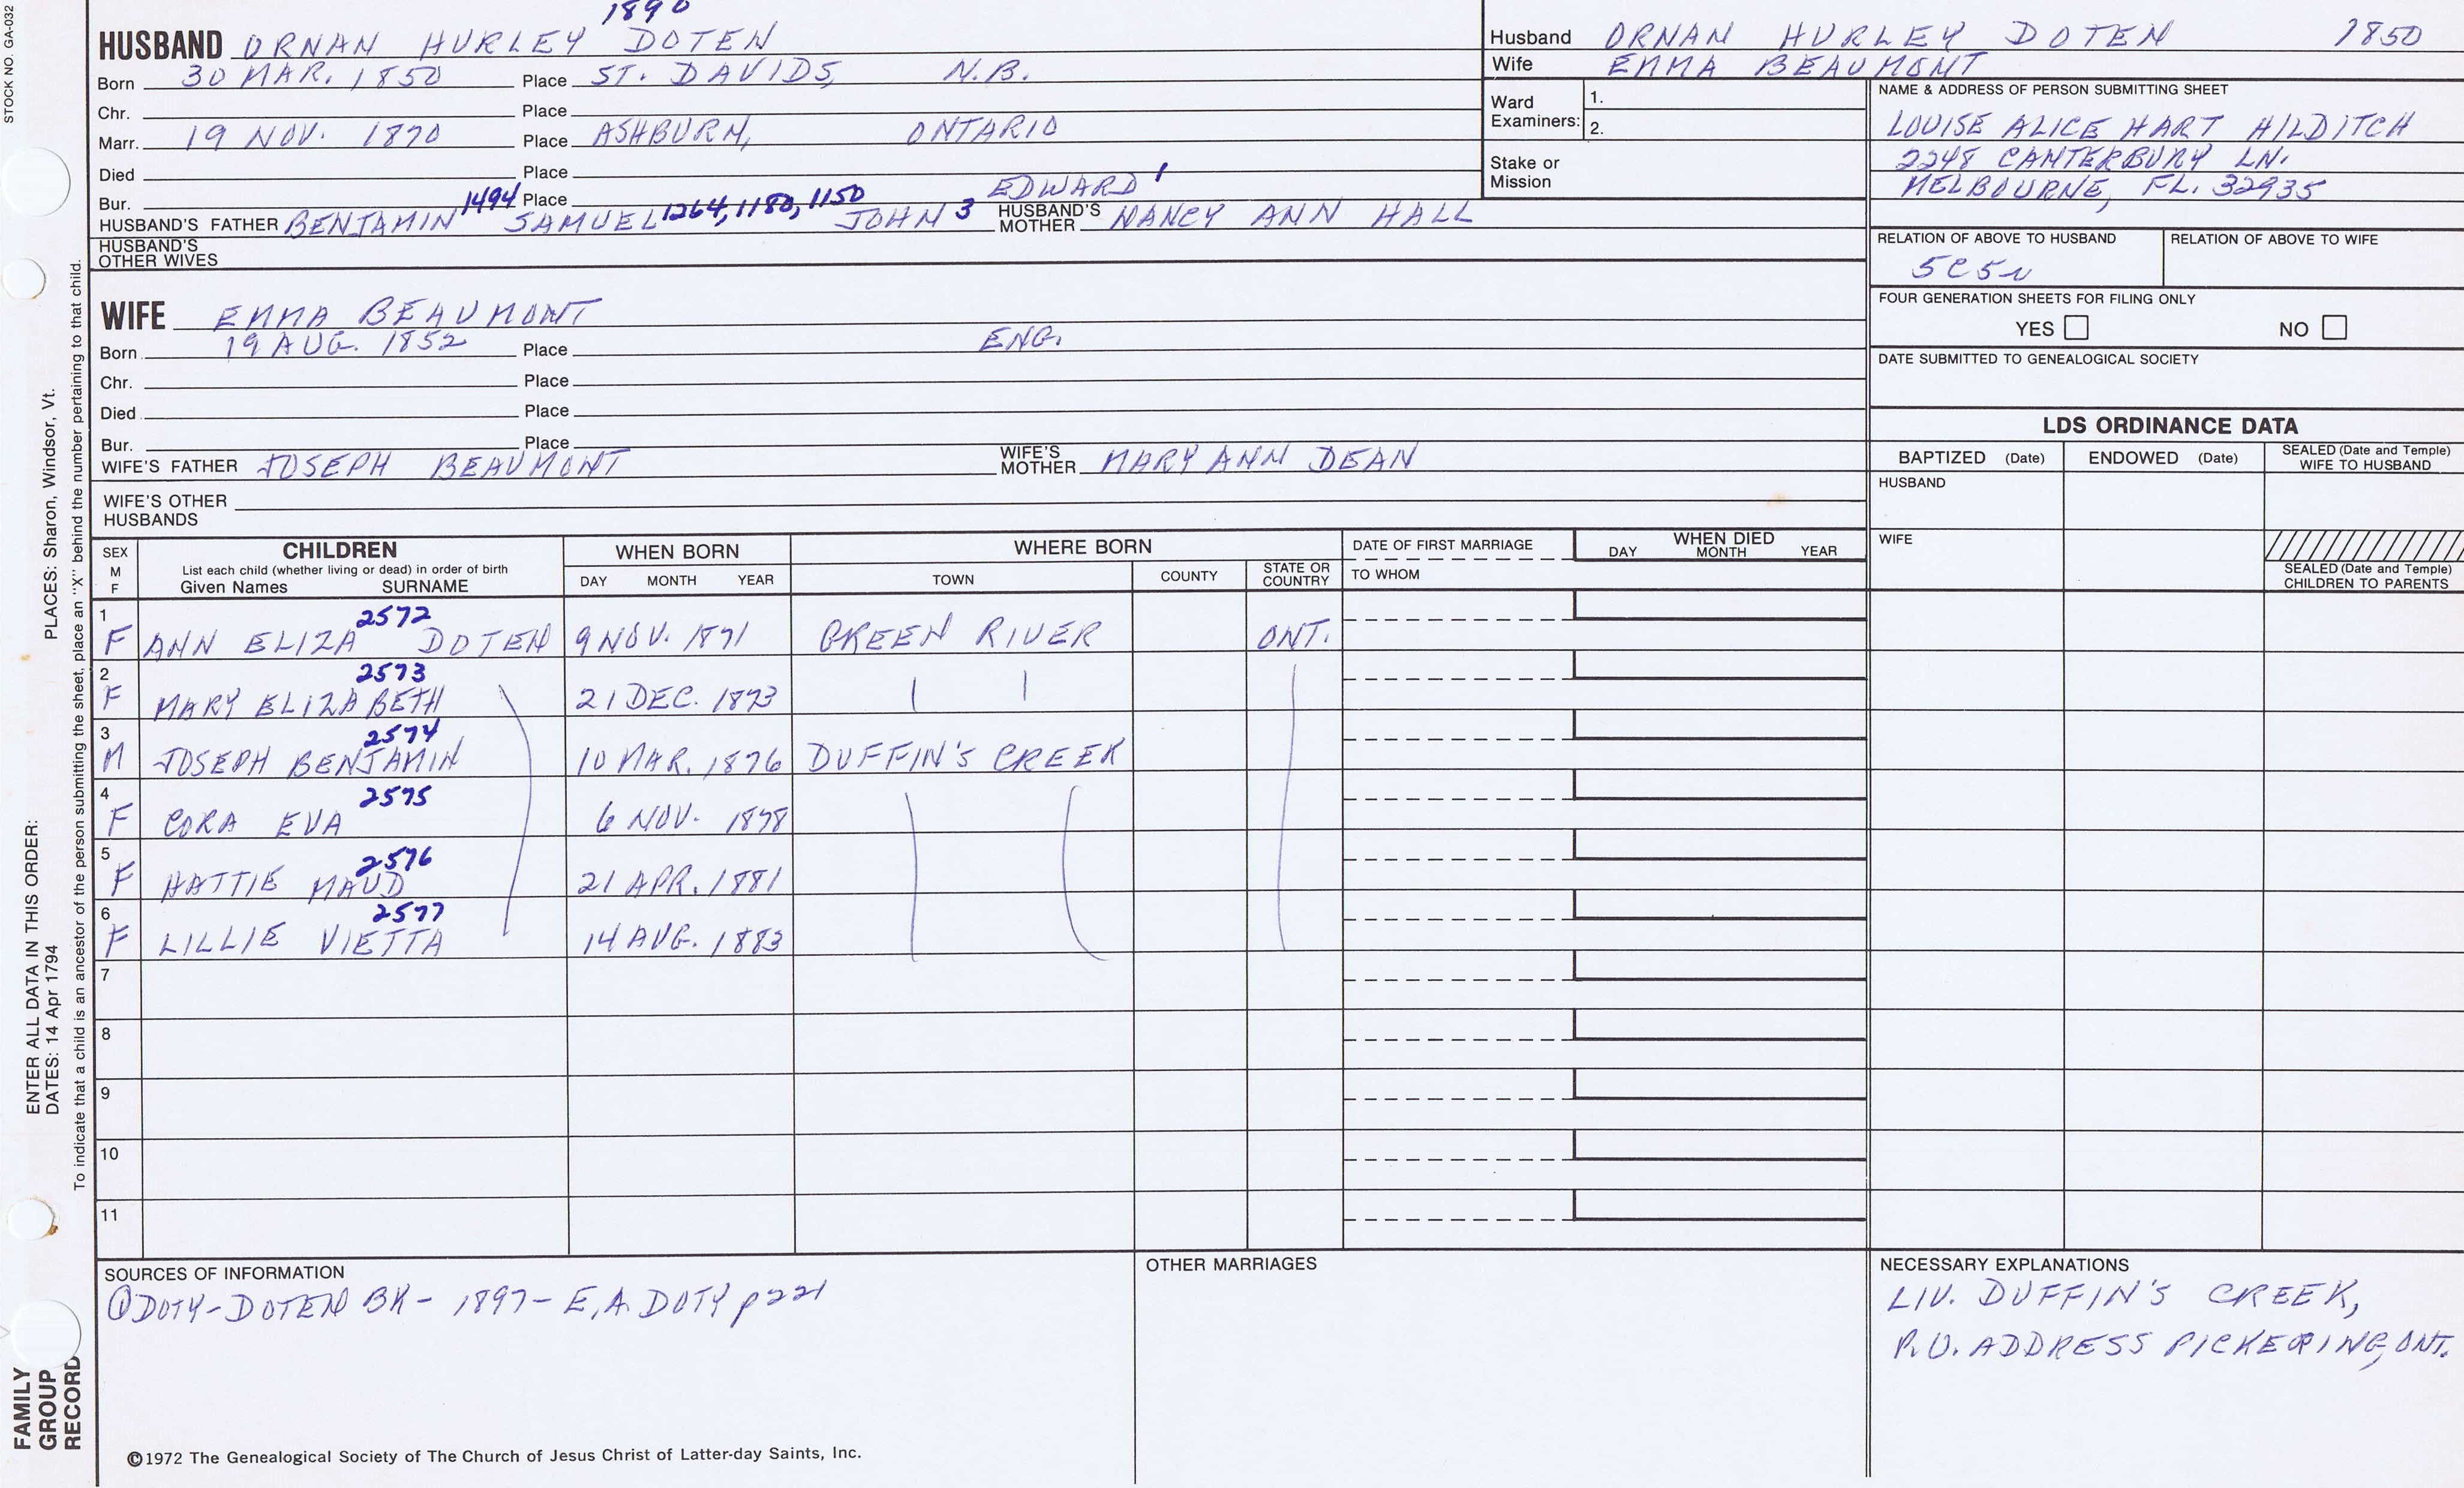 STOCK NO. GA-032
1890
HUSBAND ORNAN HURLEY DOTEN
Born 30 MAR. 1850 Place ST. DAVIDS, N.B.
Chr. Place
Marr. 19 NOV. 1870 Place ASHBURN, ONTARIO
Died Place
Bur. Place
HUSBAND'S FATHER BENJAMIN 1494 SAMUEL 1264, 1180, 1150 JOHN 3 EDWARD 1 HUSBAND'S MOTHER NANCY ANN HALL
HUSBAND'S OTHER WIVES
WIFE EMMA BEAUMONT
Born 19 AUG. 1852 Place ENG.
Chr. Place
Died Place
Bur. Place
WIFE'S FATHER JOSEPH BEAUMONT WIFE'S MOTHER MARY ANN DEAN
WIFE'S OTHER HUSBANDS
Husband ORNAN HURLEY DOTEN 1850
Wife EMMA BEAUMONT
Ward Examiners: 1.
2.
Stake or Mission
NAME & ADDRESS OF PERSON SUBMITTING SHEET
LOUISE ALICE HART HILDITCH
2248 CANTERBURY LN.
MELBOURNE, FL. 32935
RELATION OF ABOVE TO HUSBAND RELATION OF ABOVE TO WIFE
FOUR GENERATION SHEETS FOR FILING ONLY
YES NO
DATE SUBMITTED TO GENEALOGICAL SOCIETY
LDS ORDINANCE DATA
BAPTIZED (Date) ENDOWED (Date) SEALED (Date and Temple) WIFE TO HUSBAND
HUSBAND
WIFE
SEALED (Date and Temple) CHILDREN TO PARENTS
SEX M F CHILDREN WHEN BORN WHERE BORN DATE OF FIRST MARRIAGE WHEN DIED
List each child (whether living or dead) in order of birth
Given Names SURNAME DAY MONTH YEAR TOWN COUNTY STATE OR COUNTRY TO WHOM DAY MONTH YEAR
2572
1 F ANN ELIZA DOTEN 9 NOV. 1871 GREEN RIVER ONT.
2573
2 F MARY ELIZABETH 21 DEC. 1873
2574
3 M JOSEPH BENJAMIN 10 MAR. 1876 DUFFIN'S CREEK
2575
4 F CORA EVA 6 NOV. 1878
2576
5 F HATTIE MAUD 21 APR. 1881
2577
6 F LILLIE VIETTA 14 AUG. 1883
7
8
9
10
11
SOURCES OF INFORMATION
① DOTY-DOTEN BK - 1897 - E.A. DOTY p221
OTHER MARRIAGES
NECESSARY EXPLANATIONS
LIV. DUFFIN'S CREEK,
P.O. ADDRESS PICKERING, ONT.
©1972 The Genealogical Society of The Church of Jesus Christ of Latter-day Saints, Inc.
FAMILY GROUP RECORD
ENTER ALL DATA IN THIS ORDER:
DATES: 14 Apr 1794 PLACES: Sharon, Windsor, Vt.
To indicate that a child is an ancestor of the person submitting the sheet, place an "X" behind the number pertaining to that child.